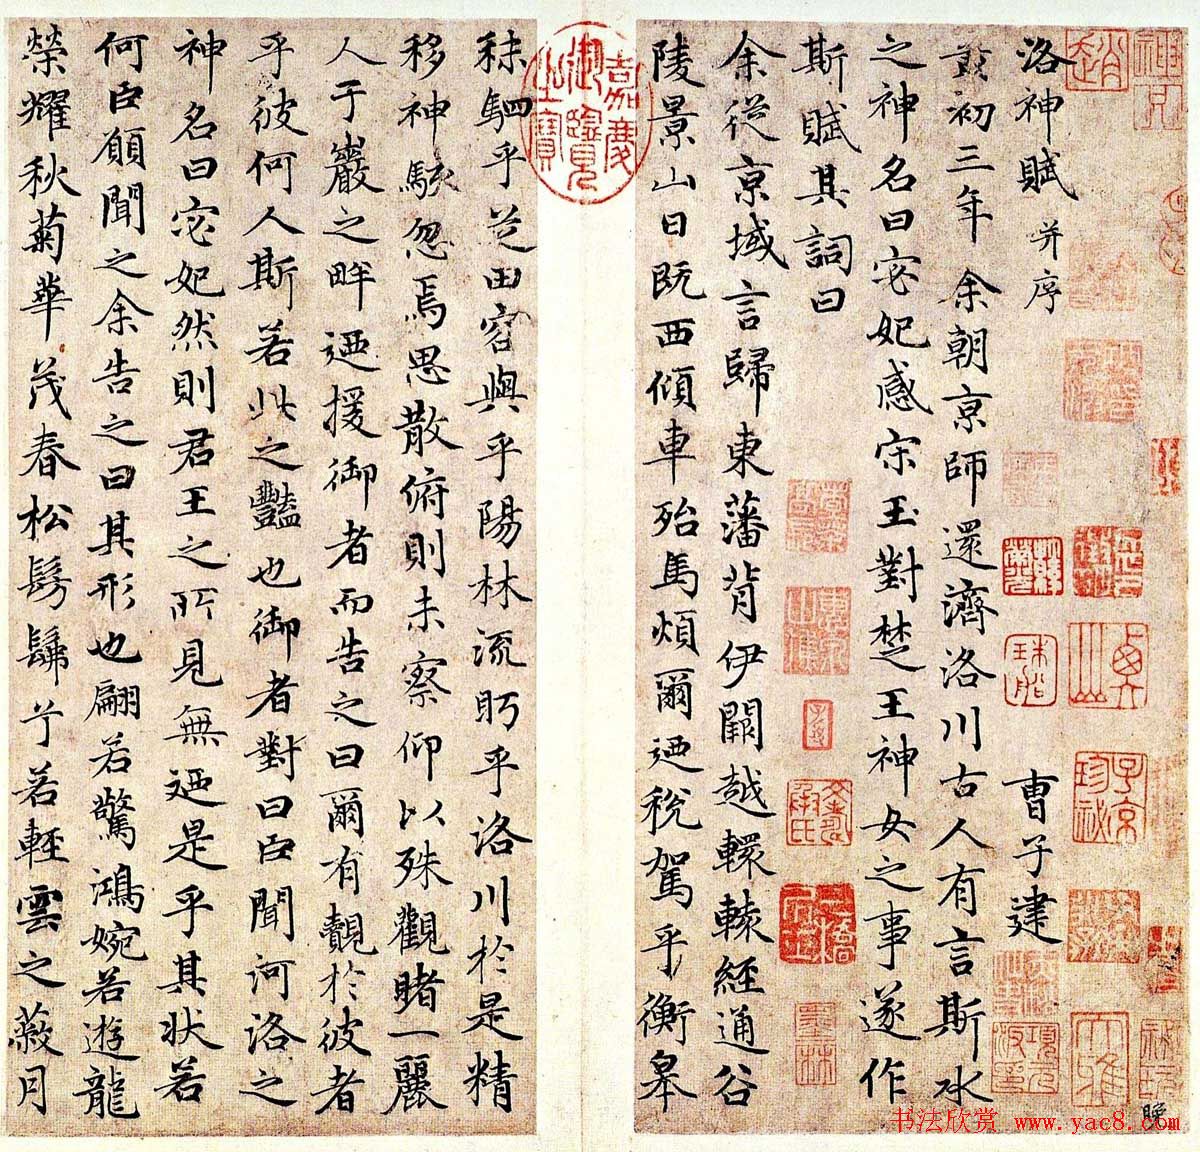 洛神賦 并序 曹子建
黃初三年余朝京師還濟洛川古人有言斯水
之神名曰宓妃感宋玉對楚王神女之事遂作
斯賦其詞曰
余從京域言歸東藩背伊闕越轘轅經通谷
陵景山日既西傾車殆馬煩爾迺稅駕乎衡皋
嘉慶御覽之寶
秣駟乎芝田容與乎陽林流眄乎洛川於是精
移神駭忽焉思散俯則未察仰以殊觀睹一麗
人于巖之畔迺援御者而告之曰爾有覿於彼者
乎彼何人斯若此之豔也御者對曰臣聞河洛之
神名曰宓妃然則君王之所見無迺是乎其狀若
何臣願聞之余告之曰其形也翩若驚鴻婉若遊龍
榮耀秋菊華茂春松髣髴兮若輕雲之蔽月
书法欣赏 www.yac8.com